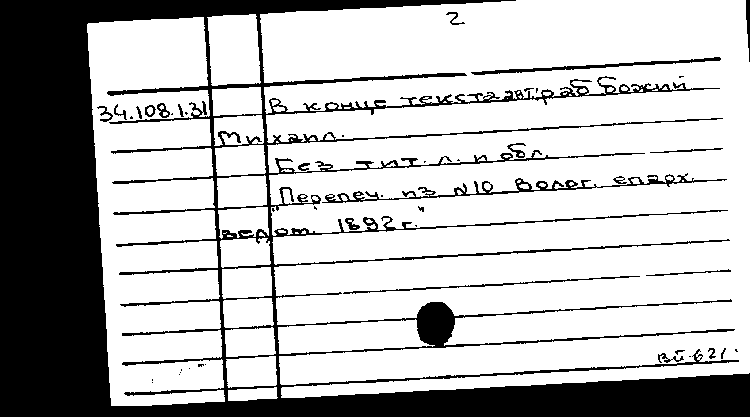 2
34.108.1.31 В конце текста авт.: раб Божий
Михаил.
Без тит. л. и обл.
"Перепеч. из №10 Волог. епарх.
ведом. 1892 г."